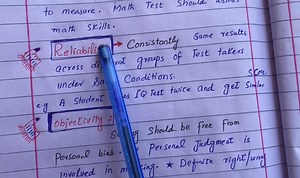 to measure. Math Test should assess
math skills.
Reliability → Consistantly Same results
across different groups of Test takers
under Conditions.
e.g A Student IQ Test twice and get Similar Score
Objectivity
Should be free from
Personal bias. Personal Judgment is
involved in ★ Definite right/wrong